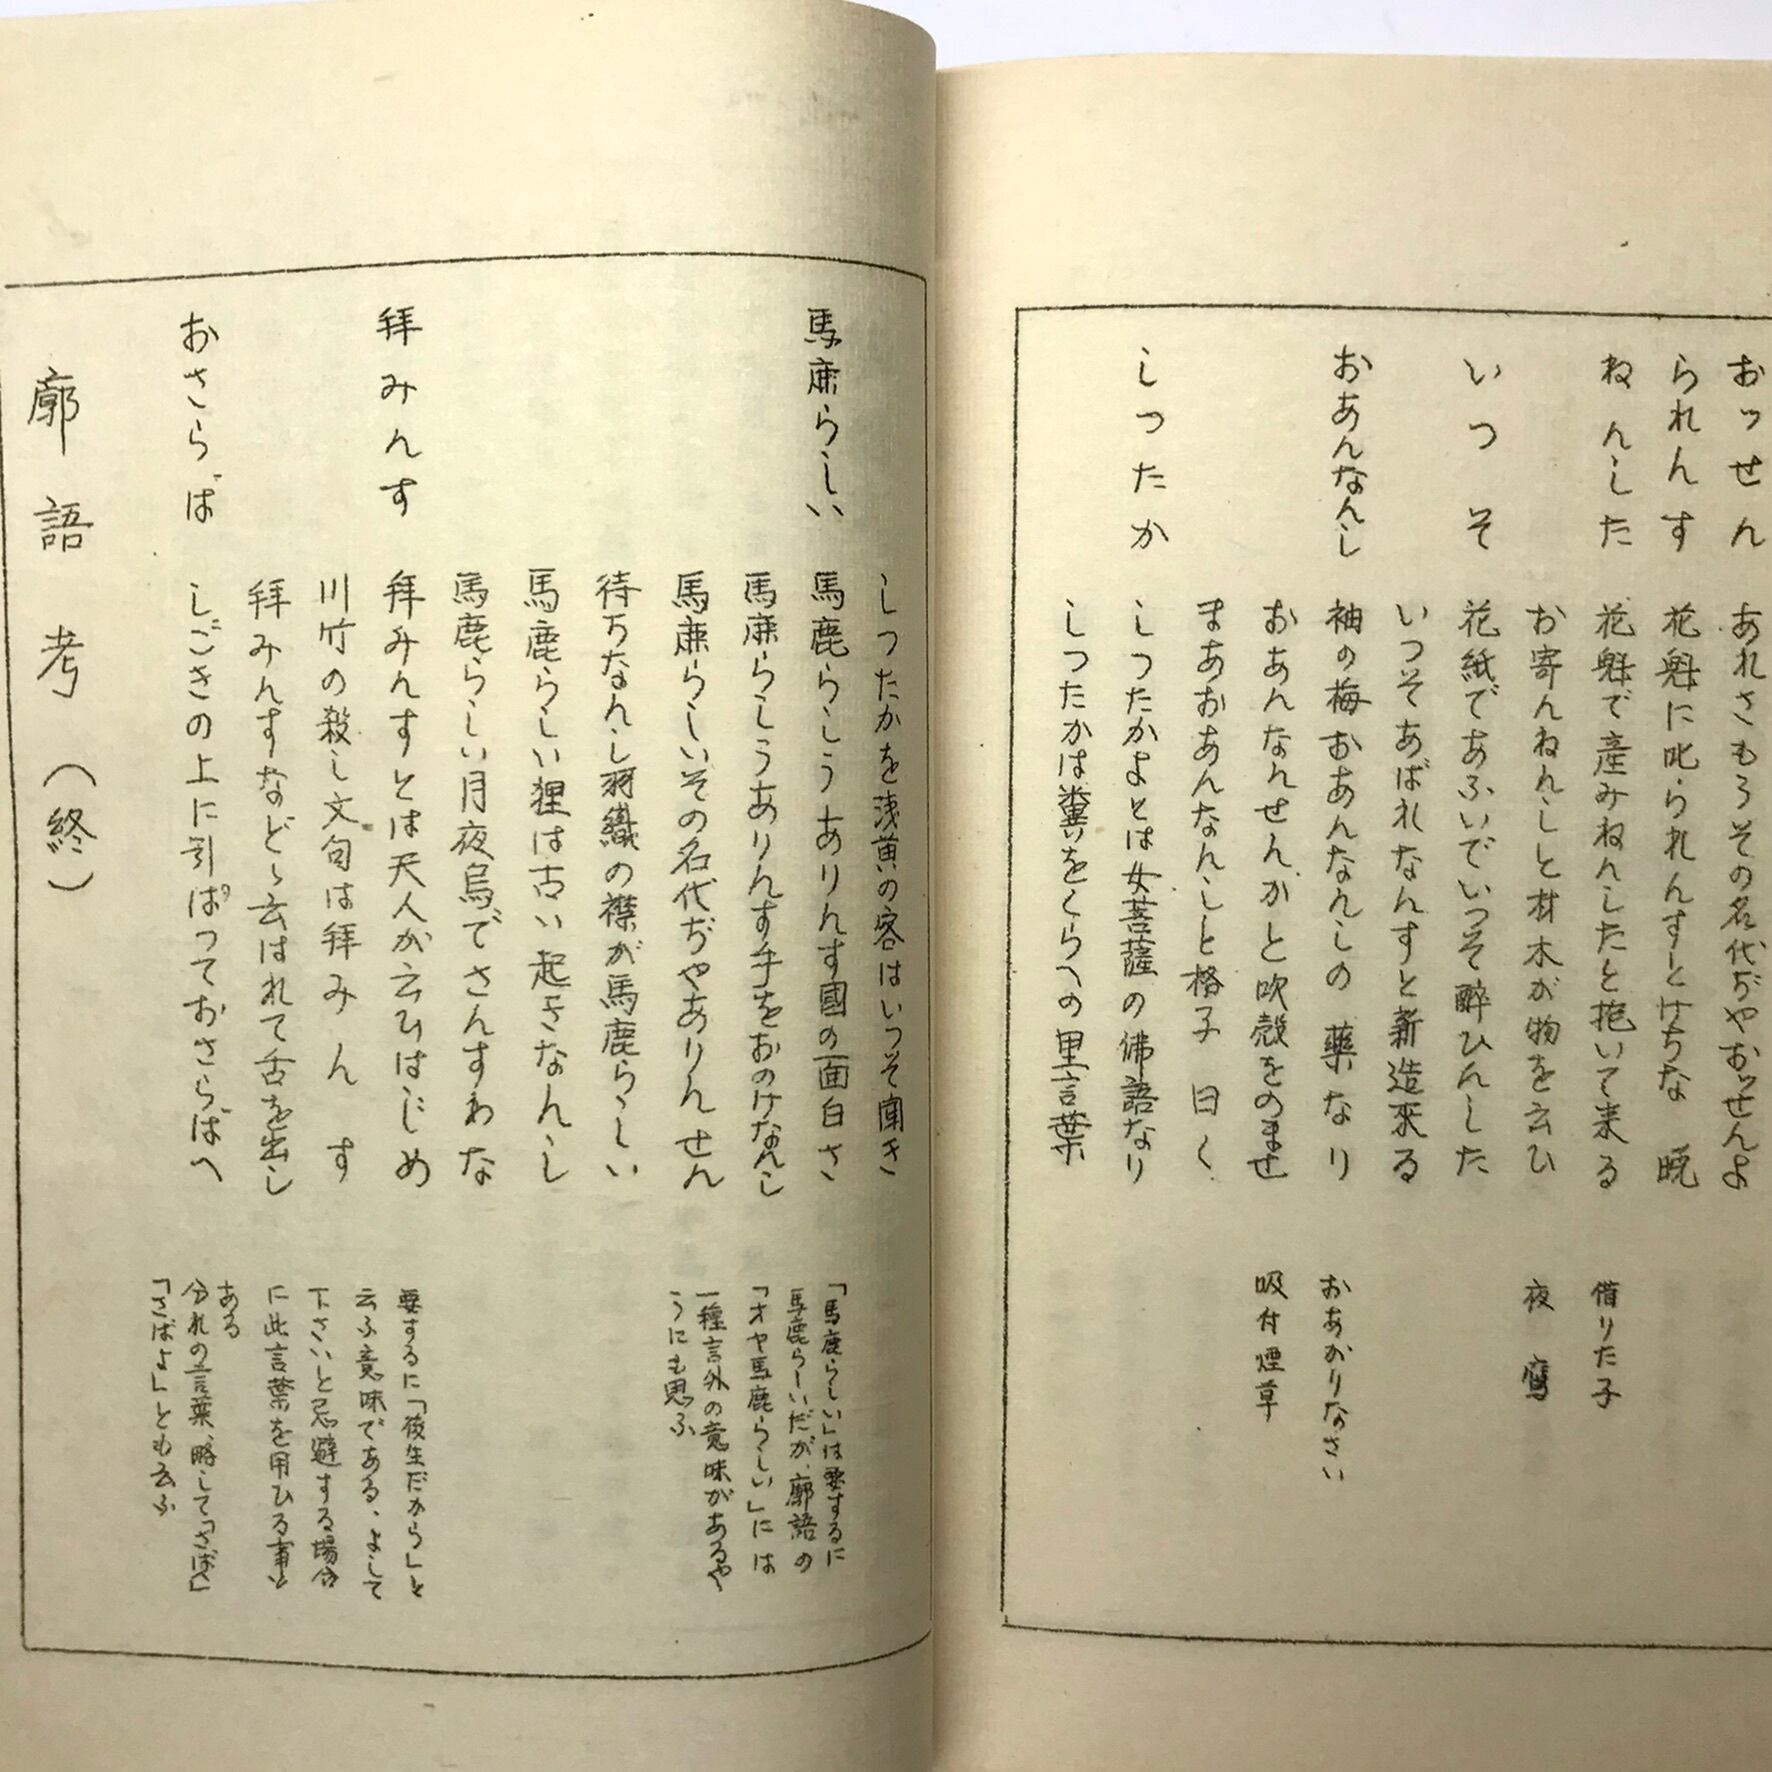 おッせん　あれさもうその名代ぢやおッせんよ
られんす　花魁に叱られんすとけちな　晩
ねんした　花魁で産みねんしたと抱いて来る　借りた子
お寄んねんしと材木が物を云ひ　夜鷹
いつそ　花紙であふいでいつそ酔ひんした
いつそあばれなんすと新造来る
おあんなんし　袖の梅おあんなんしの　薬なり　おあがりなさい
おあんなせんかと吹殻をのませ　吸付煙草
まあおあんなんしと格子　曰く
しつたか　しつたかよとは女菩薩の佛語なり
しつたかは糞をくらへの里言葉
しつたかを浅黄の客はいつそ聞き
馬鹿らしい　馬鹿らしうありんす國の面白さ　「馬鹿らしい」は要するに
馬鹿らしいだが、廓語の
馬鹿らしうありんす手をおのけなんし　「オヤ馬鹿らしい」には
馬鹿らしいその名代ぢやありんせん　一種言外の意味があるや
うにも思ふ
待ちなんし羽織の襟が馬鹿らしい
馬鹿らしい狸は古い起きなんし
馬鹿らしい月夜烏でさんすわな
拝みんす　拝みんすとは天人が云ひはじめ　要するに「後生だから」と
云ふ意味である、よして
川竹の殺し文句は拝みんす　下さいと忌避する場合
拝みんすなどゝ云はれて舌を出し　に此言葉を用ひる事も
ある
おさらば　しごきの上に引ぱつておさらばへ　分れの言葉、略して「さば」
「さばよ」とも云ふ
廓語考（終）